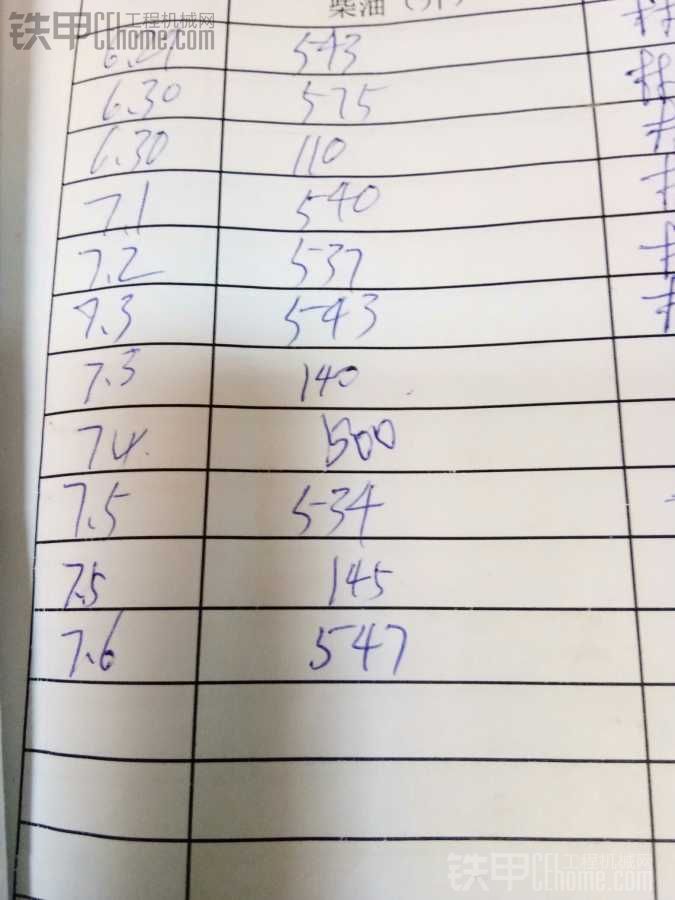 铁甲 工程机械网 CEhome.com
柴油（升）
6.29 543
6.30 575
6.30 110
7.1 540
7.2 537
7.3 543
7.3 140
7.4 500
7.5 534
7.5 145
7.6 547
铁甲 工程机械网 CEhome.com